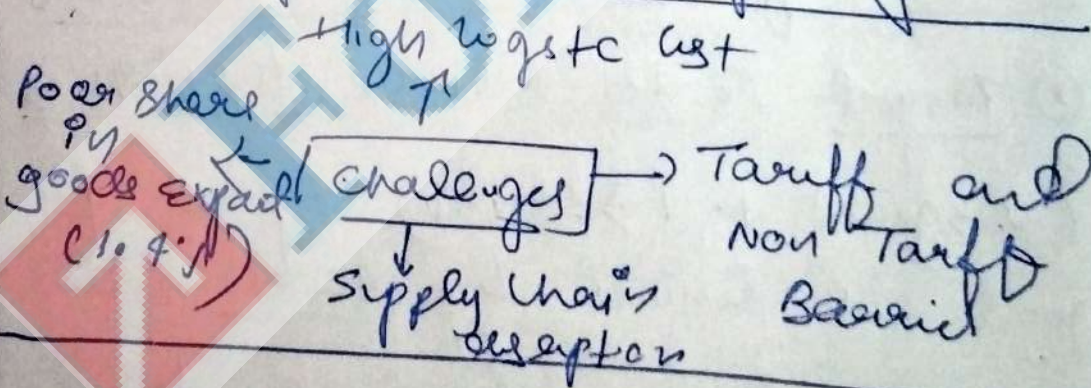 High logstc Cost
Poor share
in
goods export
(1.4%)
Challenges
Tariff and
Non Tariff
Barrier
Supply Chain